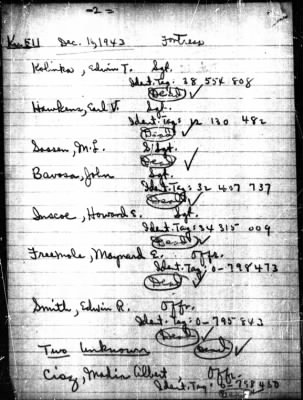 -2-
Ku 511 Dec. 11, 1943 Fortress
Kolinka, Edwin T. Sgt.
Ident. Tag: 38 554 808
Dead ✓
Hawkins, Earl V. Sgt.
Ident. Tag: 12 130 482
Dead ✓
Sossen, M.L. S/Sgt.
Dead ✓
Bavosa, John Sgt.
Ident. Tag: 32 407 737
Dead ✓
Inscoe, Howard E. Sgt.
Ident. Tag: 34 315 009
Dead ✓
Maynard E. Offr.
Ident. Tag: 0-798473
Dead ✓
Smith, Edwin R. Offr.
Ident. Tag: 0-795843
Dead ✓
Two Unknown Dead ✓
Albert, Offr.
Ident. Tag: 0-758430
Dead